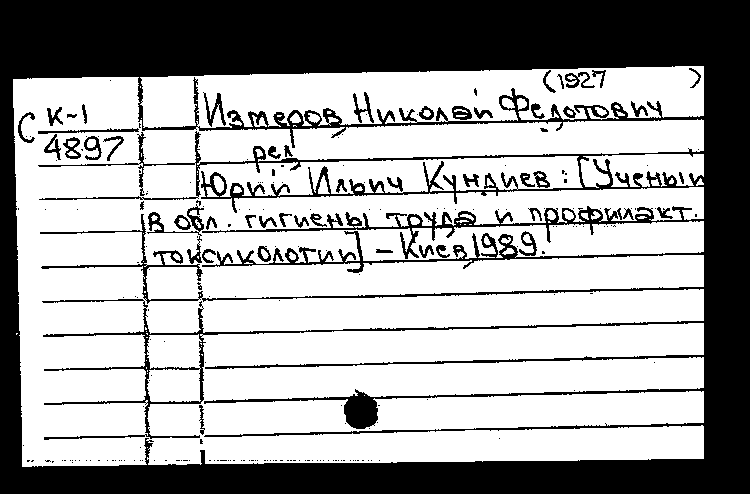 (1927 )
С К-1 Измеров Николай Федотович
4897
рец
Юрий Ильич Кундиев : [Ученый
в обл. гигиены труда и профилакт.
токсикологии] – Киев, 1989.